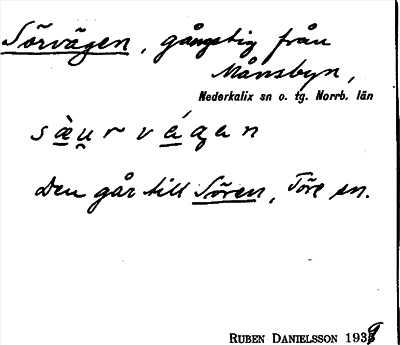 Sörvägen, gångstig från
Månsbyn,
Nederkalix sn o. tg. Norrb. län
Den går till Sören, Töre sn.
RUBEN DANIELSSON 1939